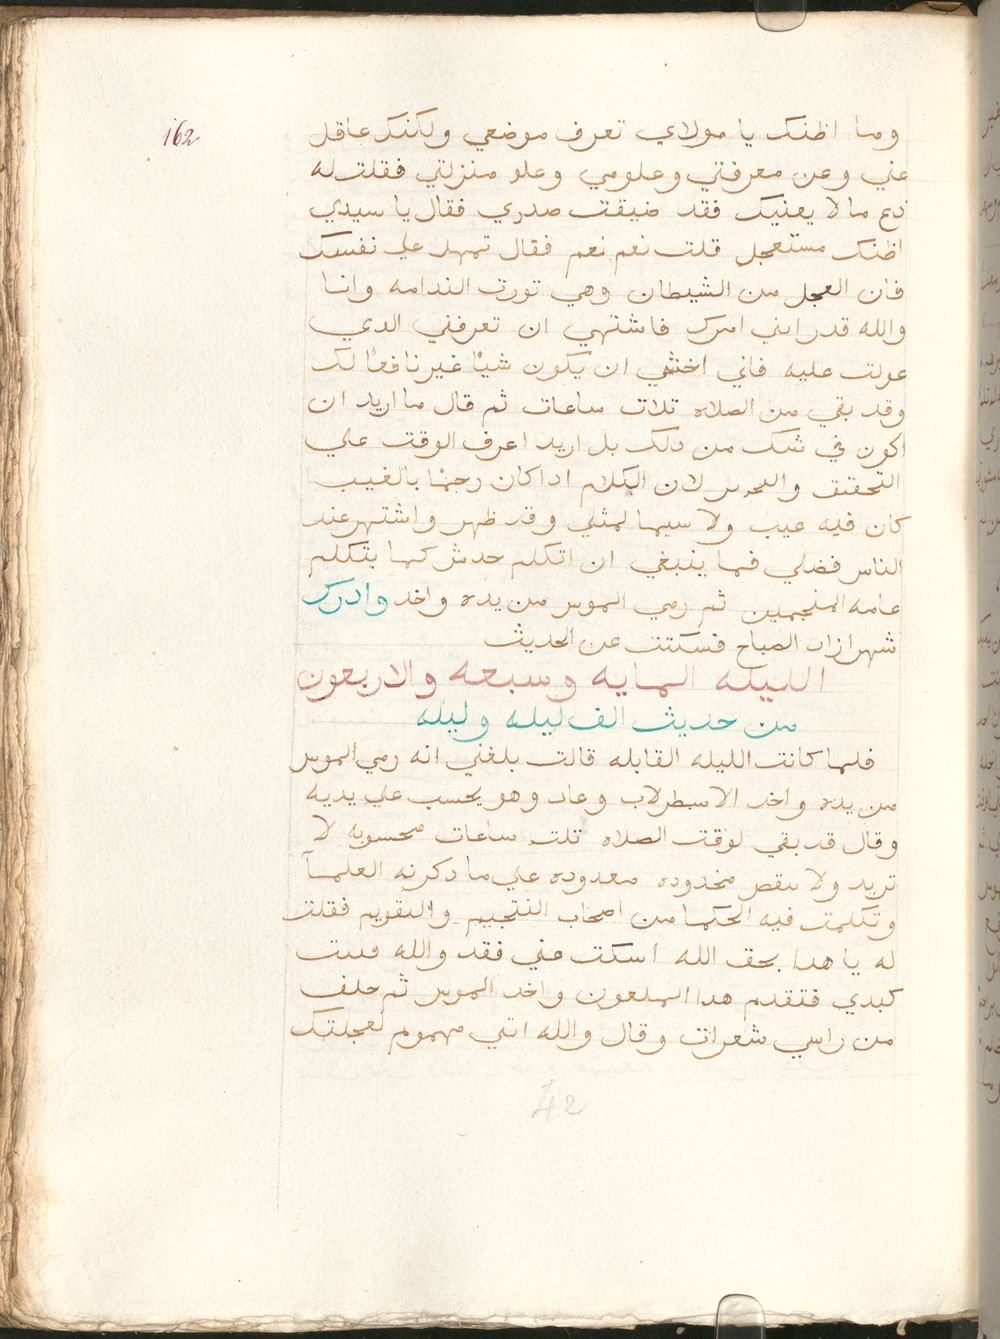 162
وما اظنك يا مولاي تعرف موضعي ولكنك غافل
عني وعن معرفتي وعلومي وعلو منزلتي فقلت له
دع ما لا يعنيك فقد ضيقت صدري فقال يا سيدي
اظنك مستعجل قلت نعم نعم فقال تمهد علي نفسك
فان العجل من الشيطان وهي تورت الندامه وانا
والله قد رابني امرك فاشتهي ان تعرفني الدي
عولت عليه فاني اخشي ان يكون شيًا غير نافعًا لك
وقد بقي من الصلاه تلات ساعات ثم قال ما اريد ان
اكون في شك من دلك بل اريد اعرف الوقت علي
التحقيق لان الكلام ادا كان رجمًا بالغيب
كان فيه عيب ولا سيما لمثلي وقد ظهر واشتهر عند
الناس فضلي فما ينبغي ان اتكلم حدش كما يتكلم
عامه المنجمين ثم رمي الموس من يده واخد وادرك
شهرازاد الصباح فسكتت عن الحديث
الليله المايه وسبعه والاربعون
من حديث الف ليله وليله
فلما كانت الليله القابله قالت بلغني انه رمي الموس
من يده واخد الاسطرلاب وعاد وهو يحسب علي يديه
وقال قد بقي لوقت الصلاه تلت ساعات محسوبه لا
تزيد ولا ينقص محدوده معدوده علي ما دكرته العلمآ
وتكلمت فيه الحكما من اصحاب التنجيم والتقويم فقلت
له يا هدا بحق الله اسكت عني فقد والله فتت
كبدي فتقدم هدا الملعون واخد الموس ثم حلف
من راسي شعرات وقال والله انني مهموم لعجلتك
42